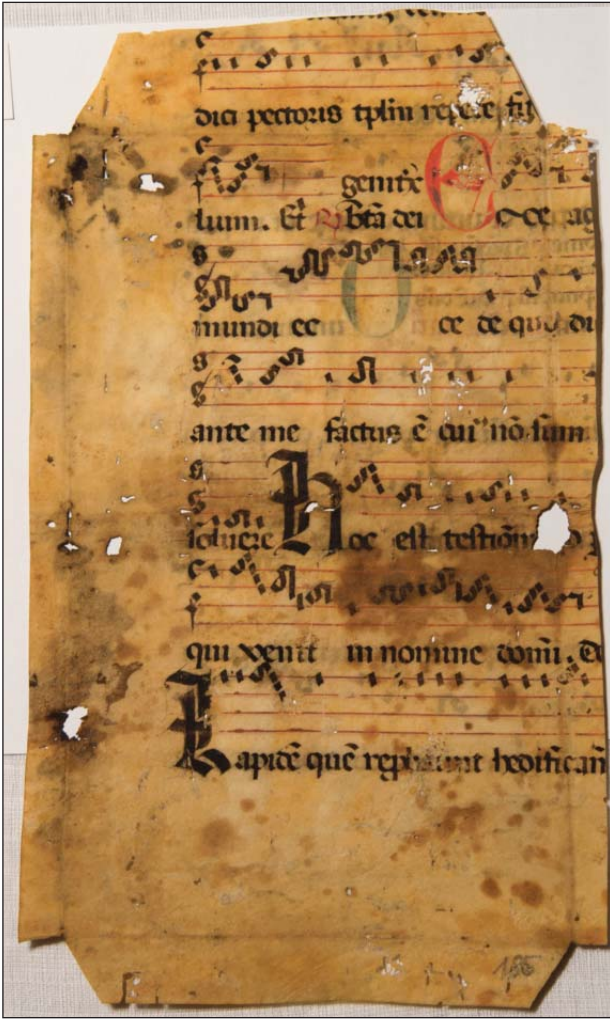 dici pectoris tp̄lm repete fit
genitx̄
luum. Et ℟ bt̄a dei Ecce ag
mundi ec ce de quo di
ante me factus ē cui nō sum
soluere Hoc est testiōm
qui venit in nomine domī. Be
Lapidē quē repbaunt hedifican
186